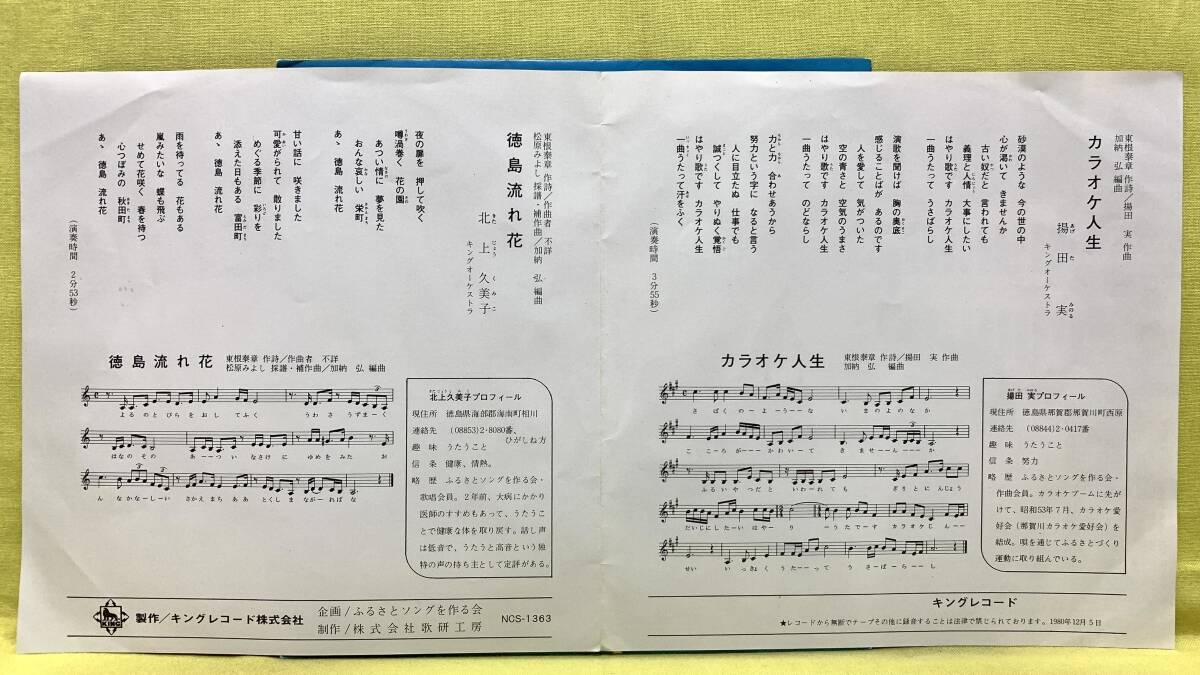 カラオケ人生
東根泰章 作詩／揚田 実 作曲
加納 弘 編曲
揚田 実
あげ た みのる
キングオーケストラ
砂漠のような 今の世の中
心が渇いて きませんか
古い奴だと 言われても
義理と人情 大事にしたい
はやり歌です カラオケ人生
一曲うたって うさばらし
演歌を聞けば 胸の奥底
感じることばが あるのです
人を愛して 気がついた
空の青さと 空気のうまさ
はやり歌です カラオケ人生
一曲うたって のどならし
力と力 合わせあうから
努力という字に なると言う
人に目立たぬ 仕事でも
誠つくして やりぬく覚悟
はやり歌です カラオケ人生
一曲うたって汗をふく
（演奏時間 3分55秒）
徳島流れ花
東根泰章 作詩／作曲者 不詳
松原みよし 採譜・補作曲／加納 弘 編曲
北上久美子
きた じょう く み こ
キングオーケストラ
夜の扉を 押して吹く
噂渦巻く 花の園
あつい情に 夢を見た
おんな哀しい 栄町
あゝ 徳島 流れ花
甘い話に 咲きました
可愛がられて 散りました
めぐる季節に 彩りを
添えた日もある 富田町
あゝ 徳島 流れ花
雨を待ってる 花もある
嵐みたいな 蝶も飛ぶ
せめて花咲く 春を待つ
心つぼみの 秋田町
あゝ 徳島 流れ花
（演奏時間 2分53秒）
徳島流れ花 東根泰章 作詩／作曲者 不詳
松原みよし 採譜・補作曲／加納 弘 編曲
よるのとびらをおしてふく うわさうずまーく
はなのその あーーつい なさけに ゆめをみた お
んなかなーしーい さかえまち ああ とくしま ながーればな
北上久美子プロフィール
現住所 徳島県海部郡海南町相川
連絡先 （08853）2-8080番、
ひがしね方
趣味 うたうこと
信条 健康、情熱。
略歴 ふるさとソングを作る会・
歌唱会員。2年前、大病にかかり
医師のすすめもあって、うたうこ
とで健康な体を取り戻す。話し声
は低音で、うたうと高音という独
特の声の持ち主として定評がある。
カラオケ人生 東根泰章 作詩／揚田 実 作曲
加納 弘 編曲
さばくのーよーうーーな いまのよのなか
こころがーーーかわいーて きませーーんーーか
ふるいやつだと いわーれても ぎりとにんじょう
だいじにしたーいはやー りーうたでーす カラオケじんーー
せい いっきょく うたーーって うさーばらーーし
揚田 実プロフィール
現住所 徳島県那賀郡那賀川町西原
連絡先 （08844）2-0417番
趣味 うたうこと
信条 努力
略歴 ふるさとソングを作る会・
作曲会員。カラオケブームに先が
けて、昭和53年7月、カラオケ愛
好会（那賀川カラオケ愛好会）を
結成。唄を通じてふるさとづくり
運動に取り組んでいる。
KING
製作／キングレコード株式会社
企画／ふるさとソングを作る会
制作／株式会社歌研工房
NCS-1363
キングレコード
★レコードから無断でテープその他に録音することは法律で禁じられております。1980年12月5日